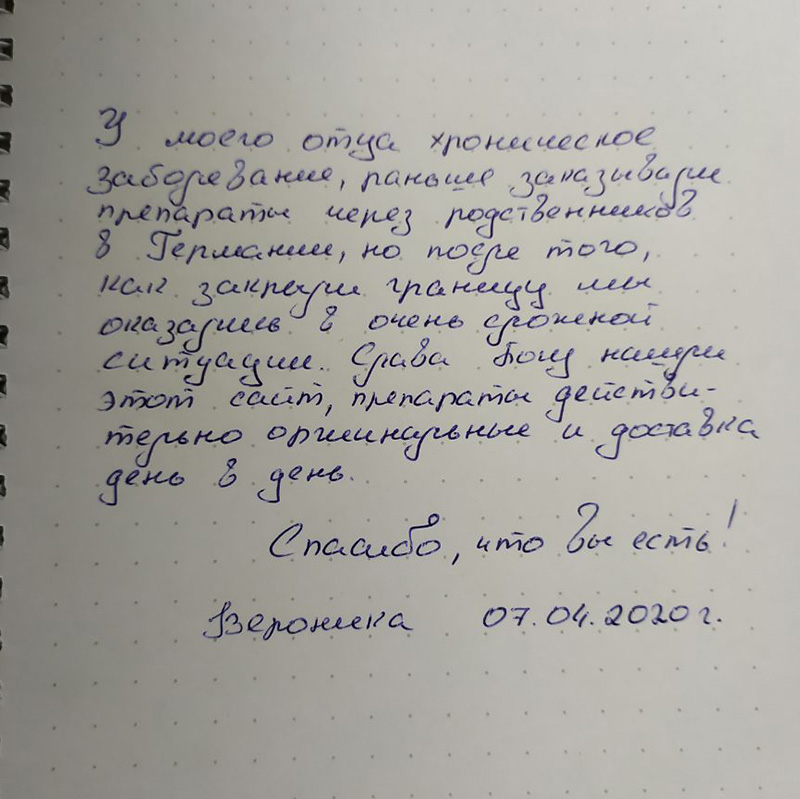 У моего отца хроническое
заболевание, раньше заказывали
препараты через родственников
в Германии, но после того,
как закрыли границу мы
оказались в очень сложной
ситуации. Слава Богу нашли
этот сайт, препараты действи-
тельно оригинальные и доставка
день в день.
Спасибо, что вы есть!
Вероника 07.04.2020г.